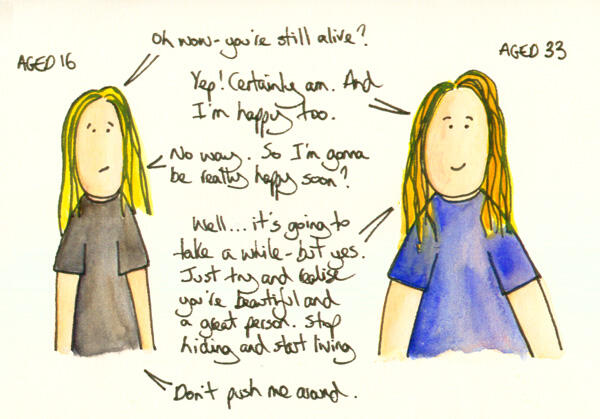 Oh wow - you're still alive?
AGED 16
AGED 33
Yep! Certainly am. And
I'm happy too.
No way. So I'm gonna
be really happy soon?
Well... it's going to
take a while - but yes.
Just try and realise
you're beautiful and
a great person. Stop
hiding and start living
Don't push me around.